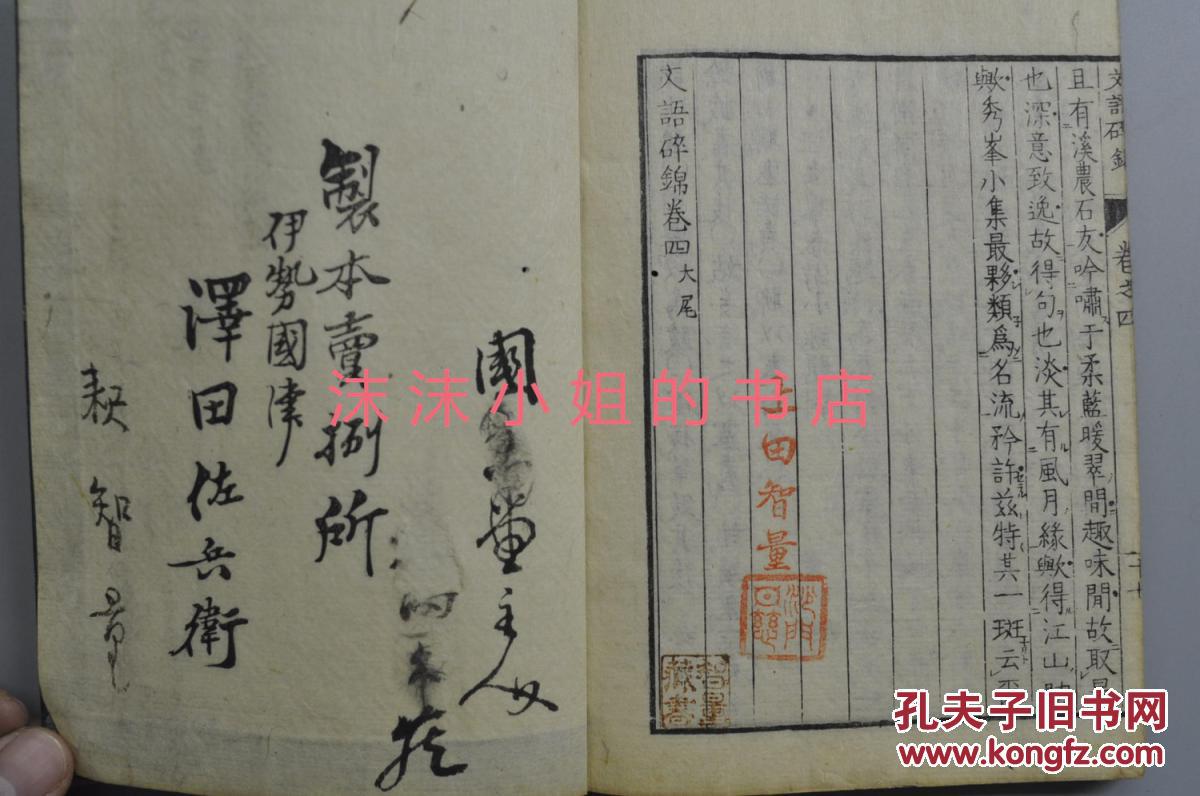 文語碎錦 卷之四
且有溪農石友吟嘯于柔藍暖翠間趣味閒故取
也深意致逸故得句也淡其有風月緣歟得江山
歟秀峯小集最夥類爲名流矜許茲特其一斑云
文語碎錦卷四大尾
田智量
沙門
智量
藏書
主人
製本賣捌所
伊勢國津
澤田佐兵衛
智量
沫沫小姐的书店
孔夫子旧书网
www.kongfz.com